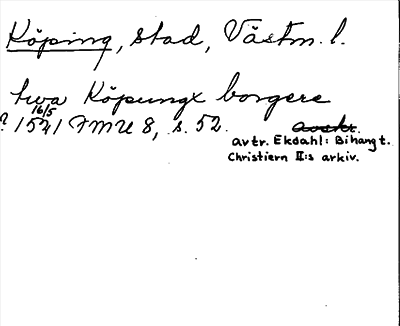 Köping, stad, Västm. l.
twa Köpungx borgere
16/5
? 1521 FMU 8, s. 52.
avtr. Ekdahl: Bihang t.
Christiern II:s arkiv.